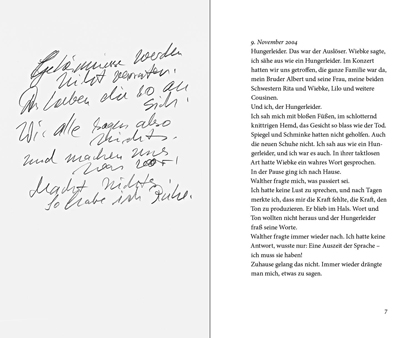 Geheimnisse werden
nicht verraten.
Sie haben die so an
sich.
Wir alle sagen also
nichts.
und machen uns
Macht nichts,
so habe ich Ruhe.
9. November 2004
Hungerleider. Das war der Auslöser. Wiebke sagte,
ich sähe aus wie ein Hungerleider. Im Konzert
hatten wir uns getroffen, die ganze Familie war da,
mein Bruder Albert und seine Frau, meine beiden
Schwestern Rita und Wiebke, Lilo und weitere
Cousinen.
Und ich, der Hungerleider.
Ich sah mich mit bloßen Füßen, im schlotternd
knittrigen Hemd, das Gesicht so blass wie der Tod.
Spiegel und Schminke hatten nicht geholfen. Auch
die neuen Schuhe nicht. Ich sah aus wie ein Hun-
gerleider, und ich war es auch. In ihrer taktlosen
Art hatte Wiebke ein wahres Wort gesprochen.
In der Pause ging ich nach Hause.
Walther fragte mich, was passiert sei.
Ich hatte keine Lust zu sprechen, und nach Tagen
merkte ich, dass mir die Kraft fehlte, die Kraft, den
Ton zu produzieren. Er blieb im Hals. Wort und
Ton wollten nicht heraus und der Hungerleider
fraß seine Worte.
Walther fragte immer wieder nach. Ich hatte keine
Antwort, wusste nur: Eine Auszeit der Sprache –
ich muss sie haben!
Zuhause gelang das nicht. Immer wieder drängte
man mich, etwas zu sagen.
7